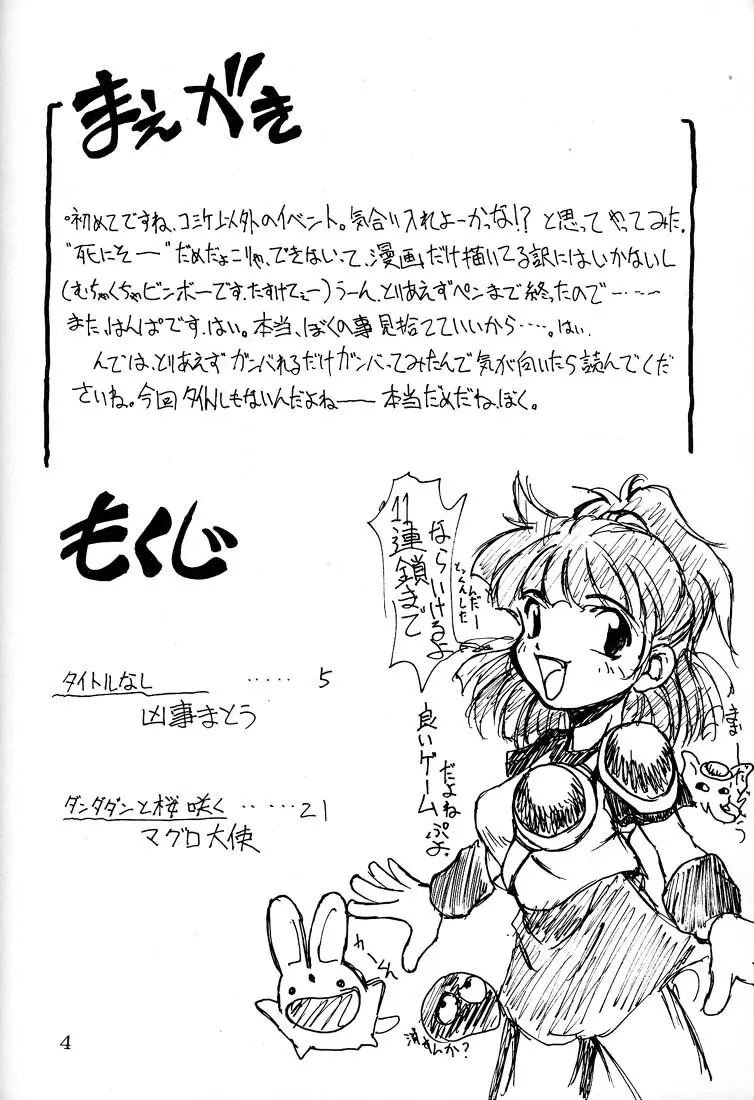 まえがき
。初めてですね、コミケ以外のイベント。気合い入れよーかっな!? と思ってやってみた。
“死にそー” だめだょこりゃ、できないって、漫画だけ描いてる訳にはいかないし
(むちゃくちゃビンボーです、たすけてぇー)うーん、とりあえずペンまで終ったので‥‥〜
また、はんぱです、はい。本当、ぼくの事見捨てていいから‥‥。はい、
んでは、とりあえずガンバれるだけガンバってみたんで気が向いたら読んでくだ
さいね。今回タイトルもないんだよね── 本当だめだね、ぼく。
もくじ
タイトルなし ‥‥‥ 5
凶事まとう
ダンダダンと桜咲く ‥‥‥ 21
マグロ大使
11連鎖まで
ならいけるよ
とっくんした
んだー
良いゲーム
だよね
ぷよ、
わーん
4